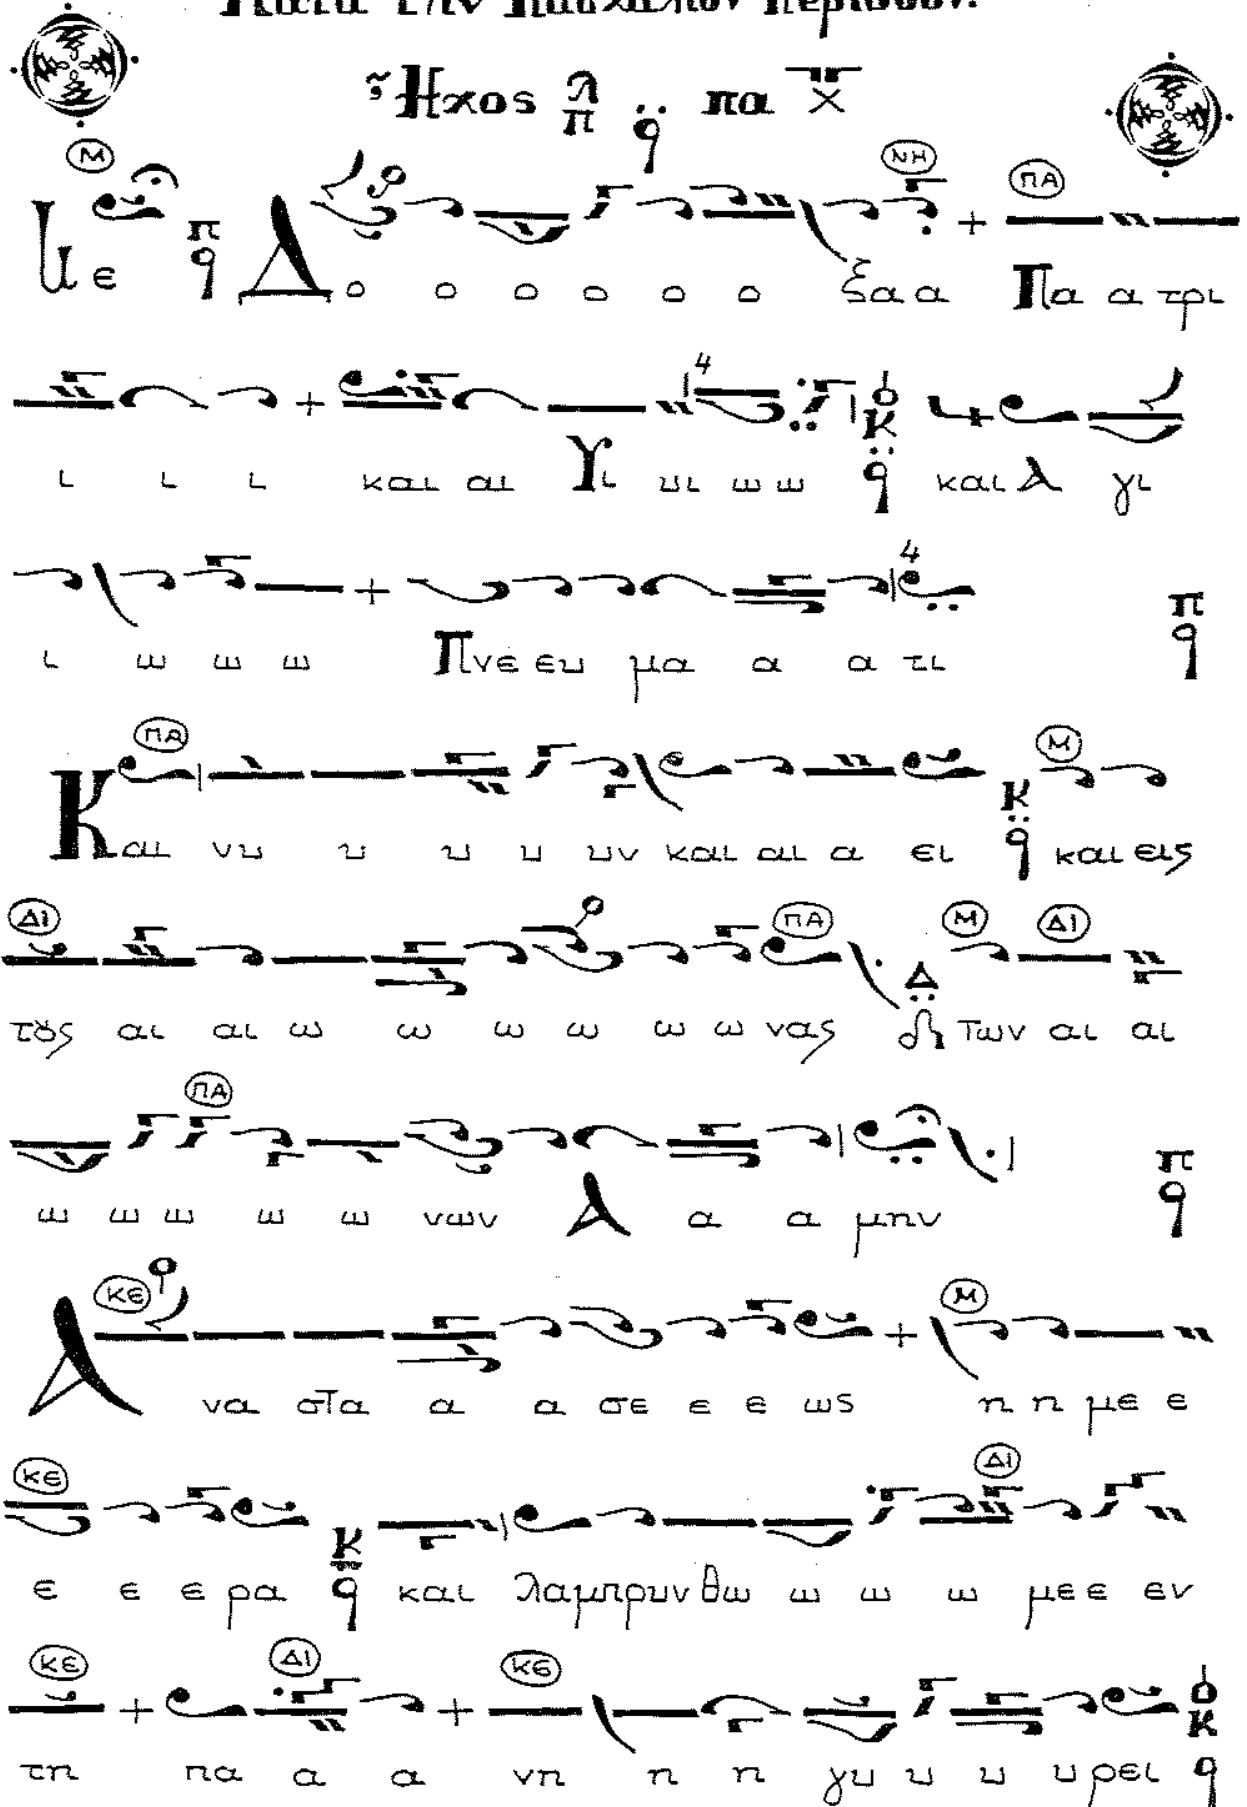 Κατὰ τὴν Πασχάλιον περίοδον.
Ἦχος λ π q πα
Μ ΝΗ ΠΑ
Νε π q Δο ο ο ο ο ο ξα α Πα α τρι
4
ι ι ι και αι Υι υι ω ω κ q και Α γι
4
ι ω ω ω Πνε ευ μα α α τι π q
ΠΑ Μ
Και νυ υ υ υ υν και αι α ει κ q και εις
ΔΙ ΠΑ Μ ΔΙ
τȣς αι αι ω ω ω ω ω ω νας Δ των αι αι
ΠΑ
ω ω ω ω ω νων Α α α μην π q
ΚΕ Μ
Α να στα α α σε ε ε ως η η με ε
ΚΕ ΔΙ
ε ε ε ρα κ q και λαμπρυν θω ω ω ω με ε εν
ΚΕ ΔΙ ΚΕ
τη πα α α νη η η γυ υ υ υ ρει κ q